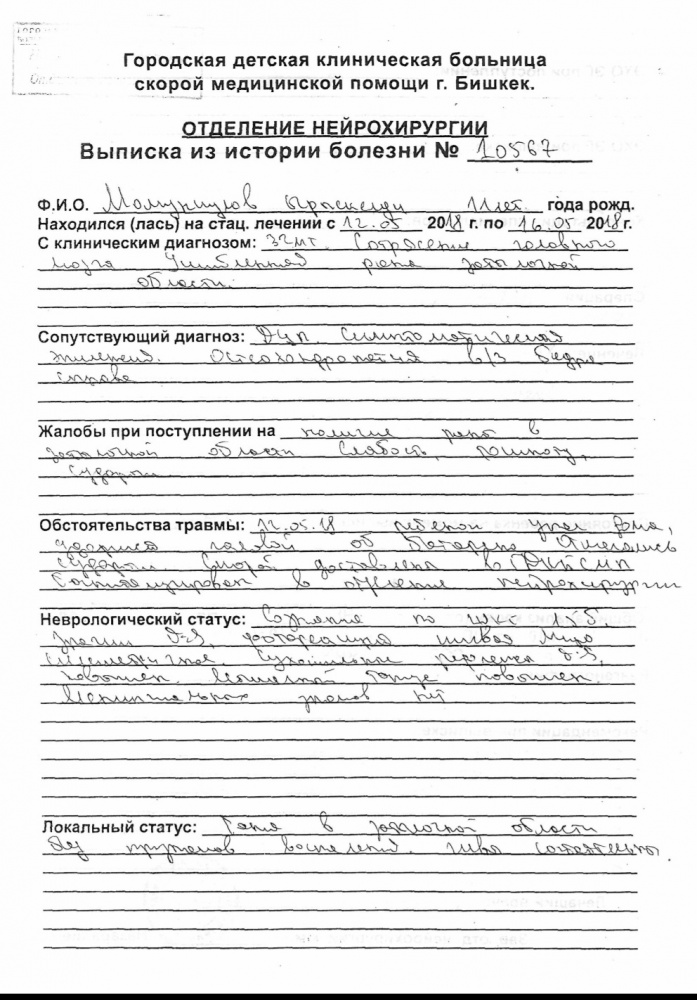 Городская детская клиническая больница
скорой медицинской помощи г. Бишкек.
ОТДЕЛЕНИЕ НЕЙРОХИРУРГИИ
Выписка из истории болезни № 10567
Ф.И.О. 11 лет. года рожд.
Находился (лась) на стац. лечении с 12.05 2018 г. по 16.05 2018 г.
С клиническим диагнозом: ЗЧМТ. Сотрясение головного
мозга Ушибленная рана затылочной
области.
Сопутствующий диагноз: ДЦП. Симптоматическая
эпилепсия. Остеохондропатия в/з бедра
справа
Жалобы при поступлении на наличие раны в
затылочной области слабость, тошноту,
судороги
Обстоятельства травмы: 12.05.18 ребенок упал дома,
ударился головой об батарею Отмечались
судороги. Скорой доставлен в ГДКБСМП
Госпитализирован в отделение нейрохирургии
Неврологический статус: Сознание по ШКГ 15 б
Зрачки D=S, фотореакция живая Лицо
симметричное. Сухожильные рефлексы D=S,
повышен. Мышечный тонус повышен.
Менингеальных знаков нет
Локальный статус: Рана в затылочной области
без признаков воспаления. швы состоятельны